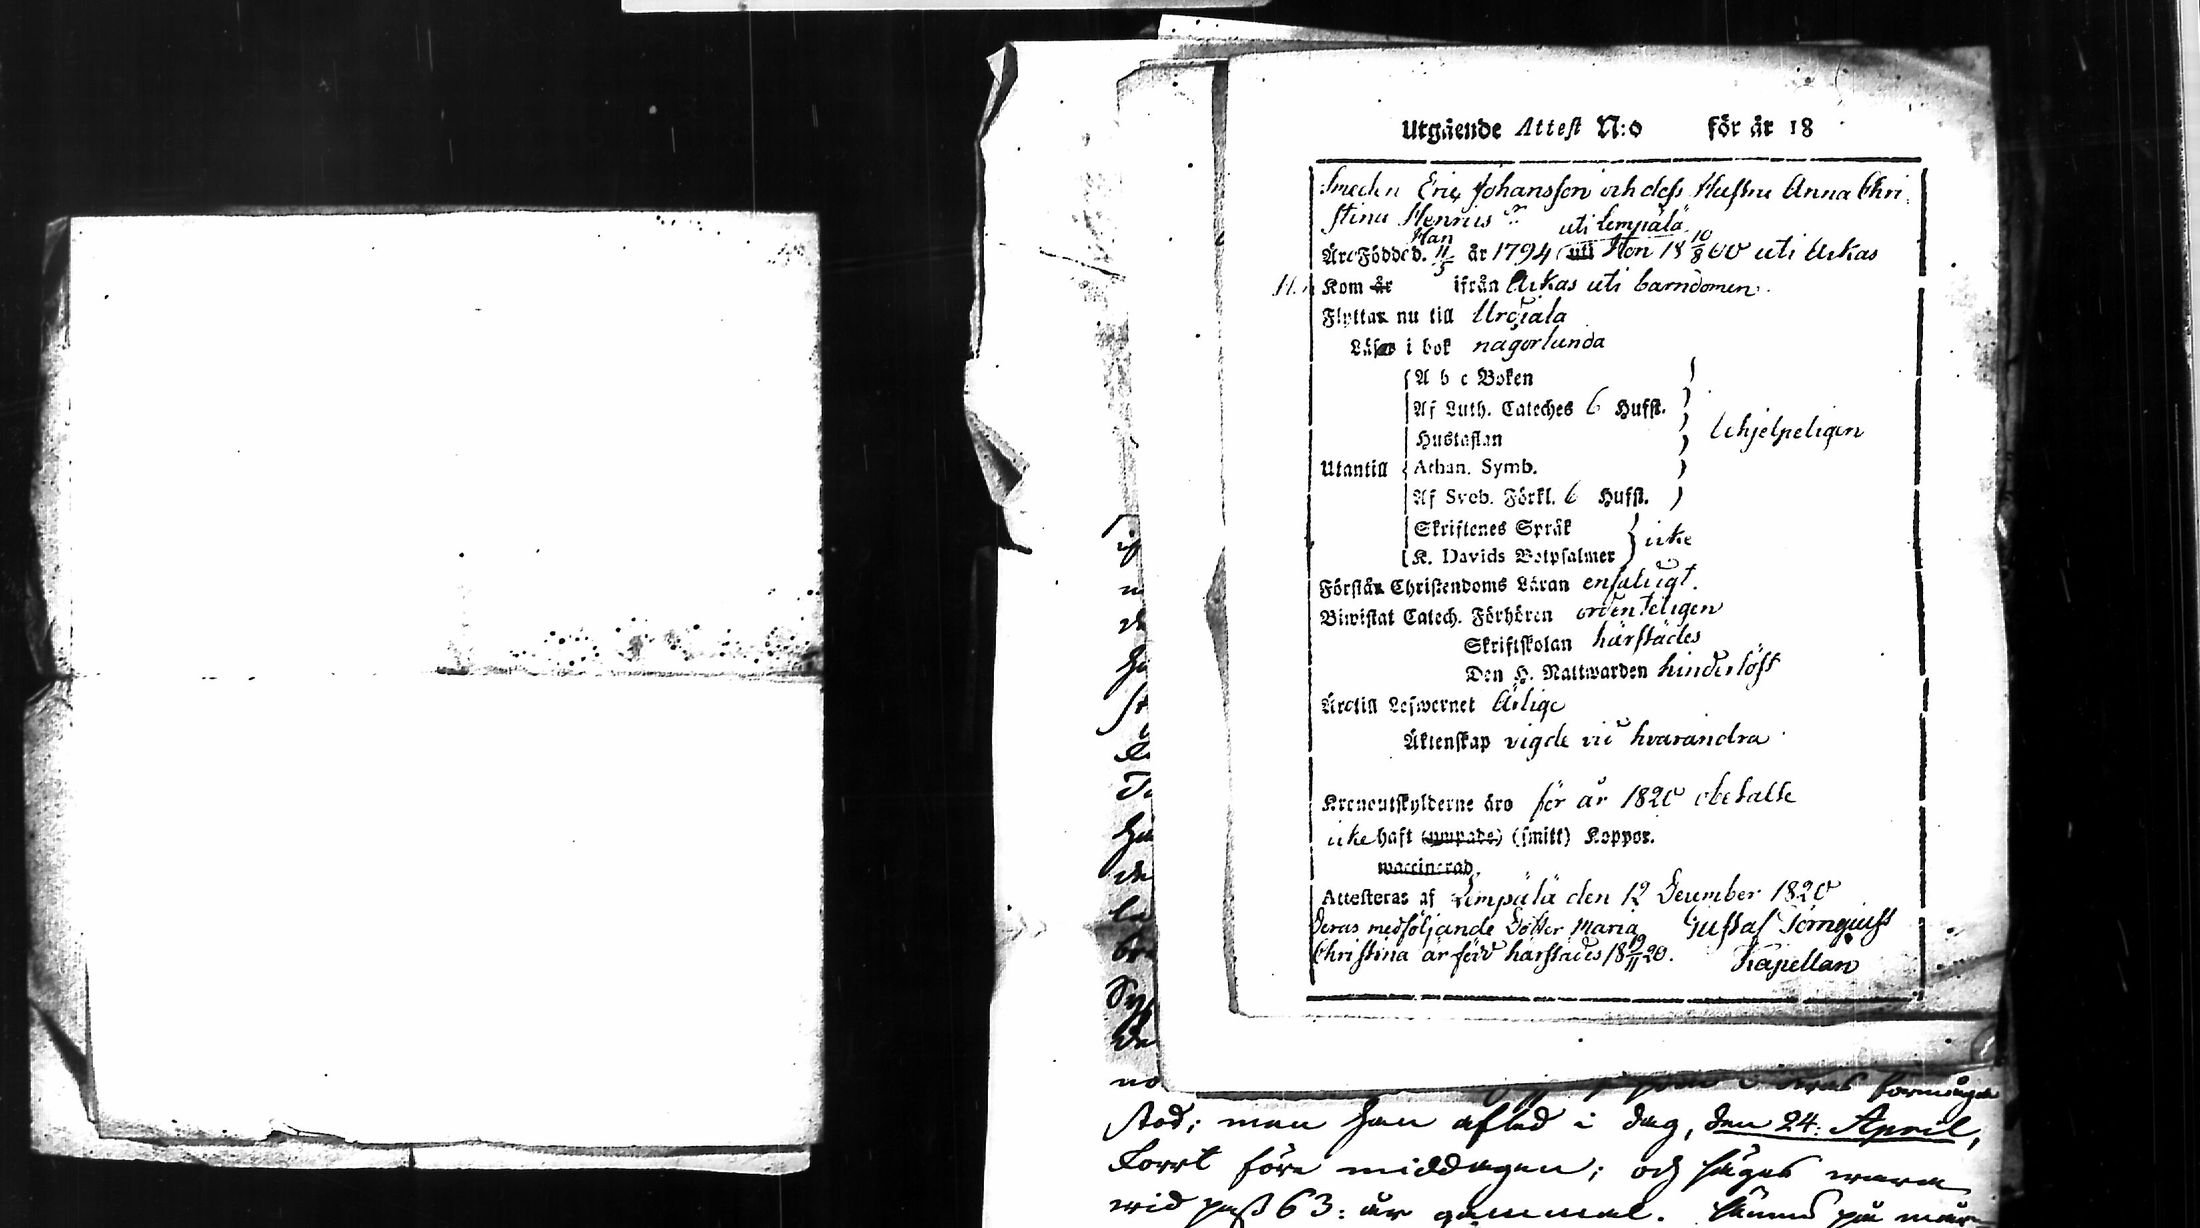 Utgående Attest N:o för år 18
Smeden Eric Johansson och dess Hustru Anna Chri-
stina Henrics dr
uti Lempälä
Han
Äre Födde d. 11/5 år 1794 (uti Hon 18 10/8 00 uti Ackas
Hon Kom år ifrån Ackas uti barndomen.
Flyttar nu till Urdiala
Läser i bok någorlunda
A b c Boken
Af Luth. Cateches 6 Hufst.
Hustaflan
Utantill Athan. Symb.
Af Sveb. Förkl. 6 Hufst.
hjelpeligen
Skriftenes Språk
K. Davids Botpsalmer
icke
Förstår Christendoms Läran enfaldigt.
Biwistat Catech. Förhören ordenteligen
Skriftskolan härstädes
Den H. Nattwarden hinderlöst
Äre till Lefwernet Ärlige
Äktenskap vigde vid hvarandra
Kronoutskylderne äro för år 1820 obetalte
icke haft (ympade) (smitt) Koppor.
waccinerad.
Attesteras af Lempälä den 12 December 1820
Deras medföljande Dotter Maria Gustaf Törnquist
Christina är född härstädes 18 19/11 20. Kapellan
förmåga
stod; men han afled i dag, den 24: April,
kort före middagen; och säges wara
wid pass 63: år gammal.